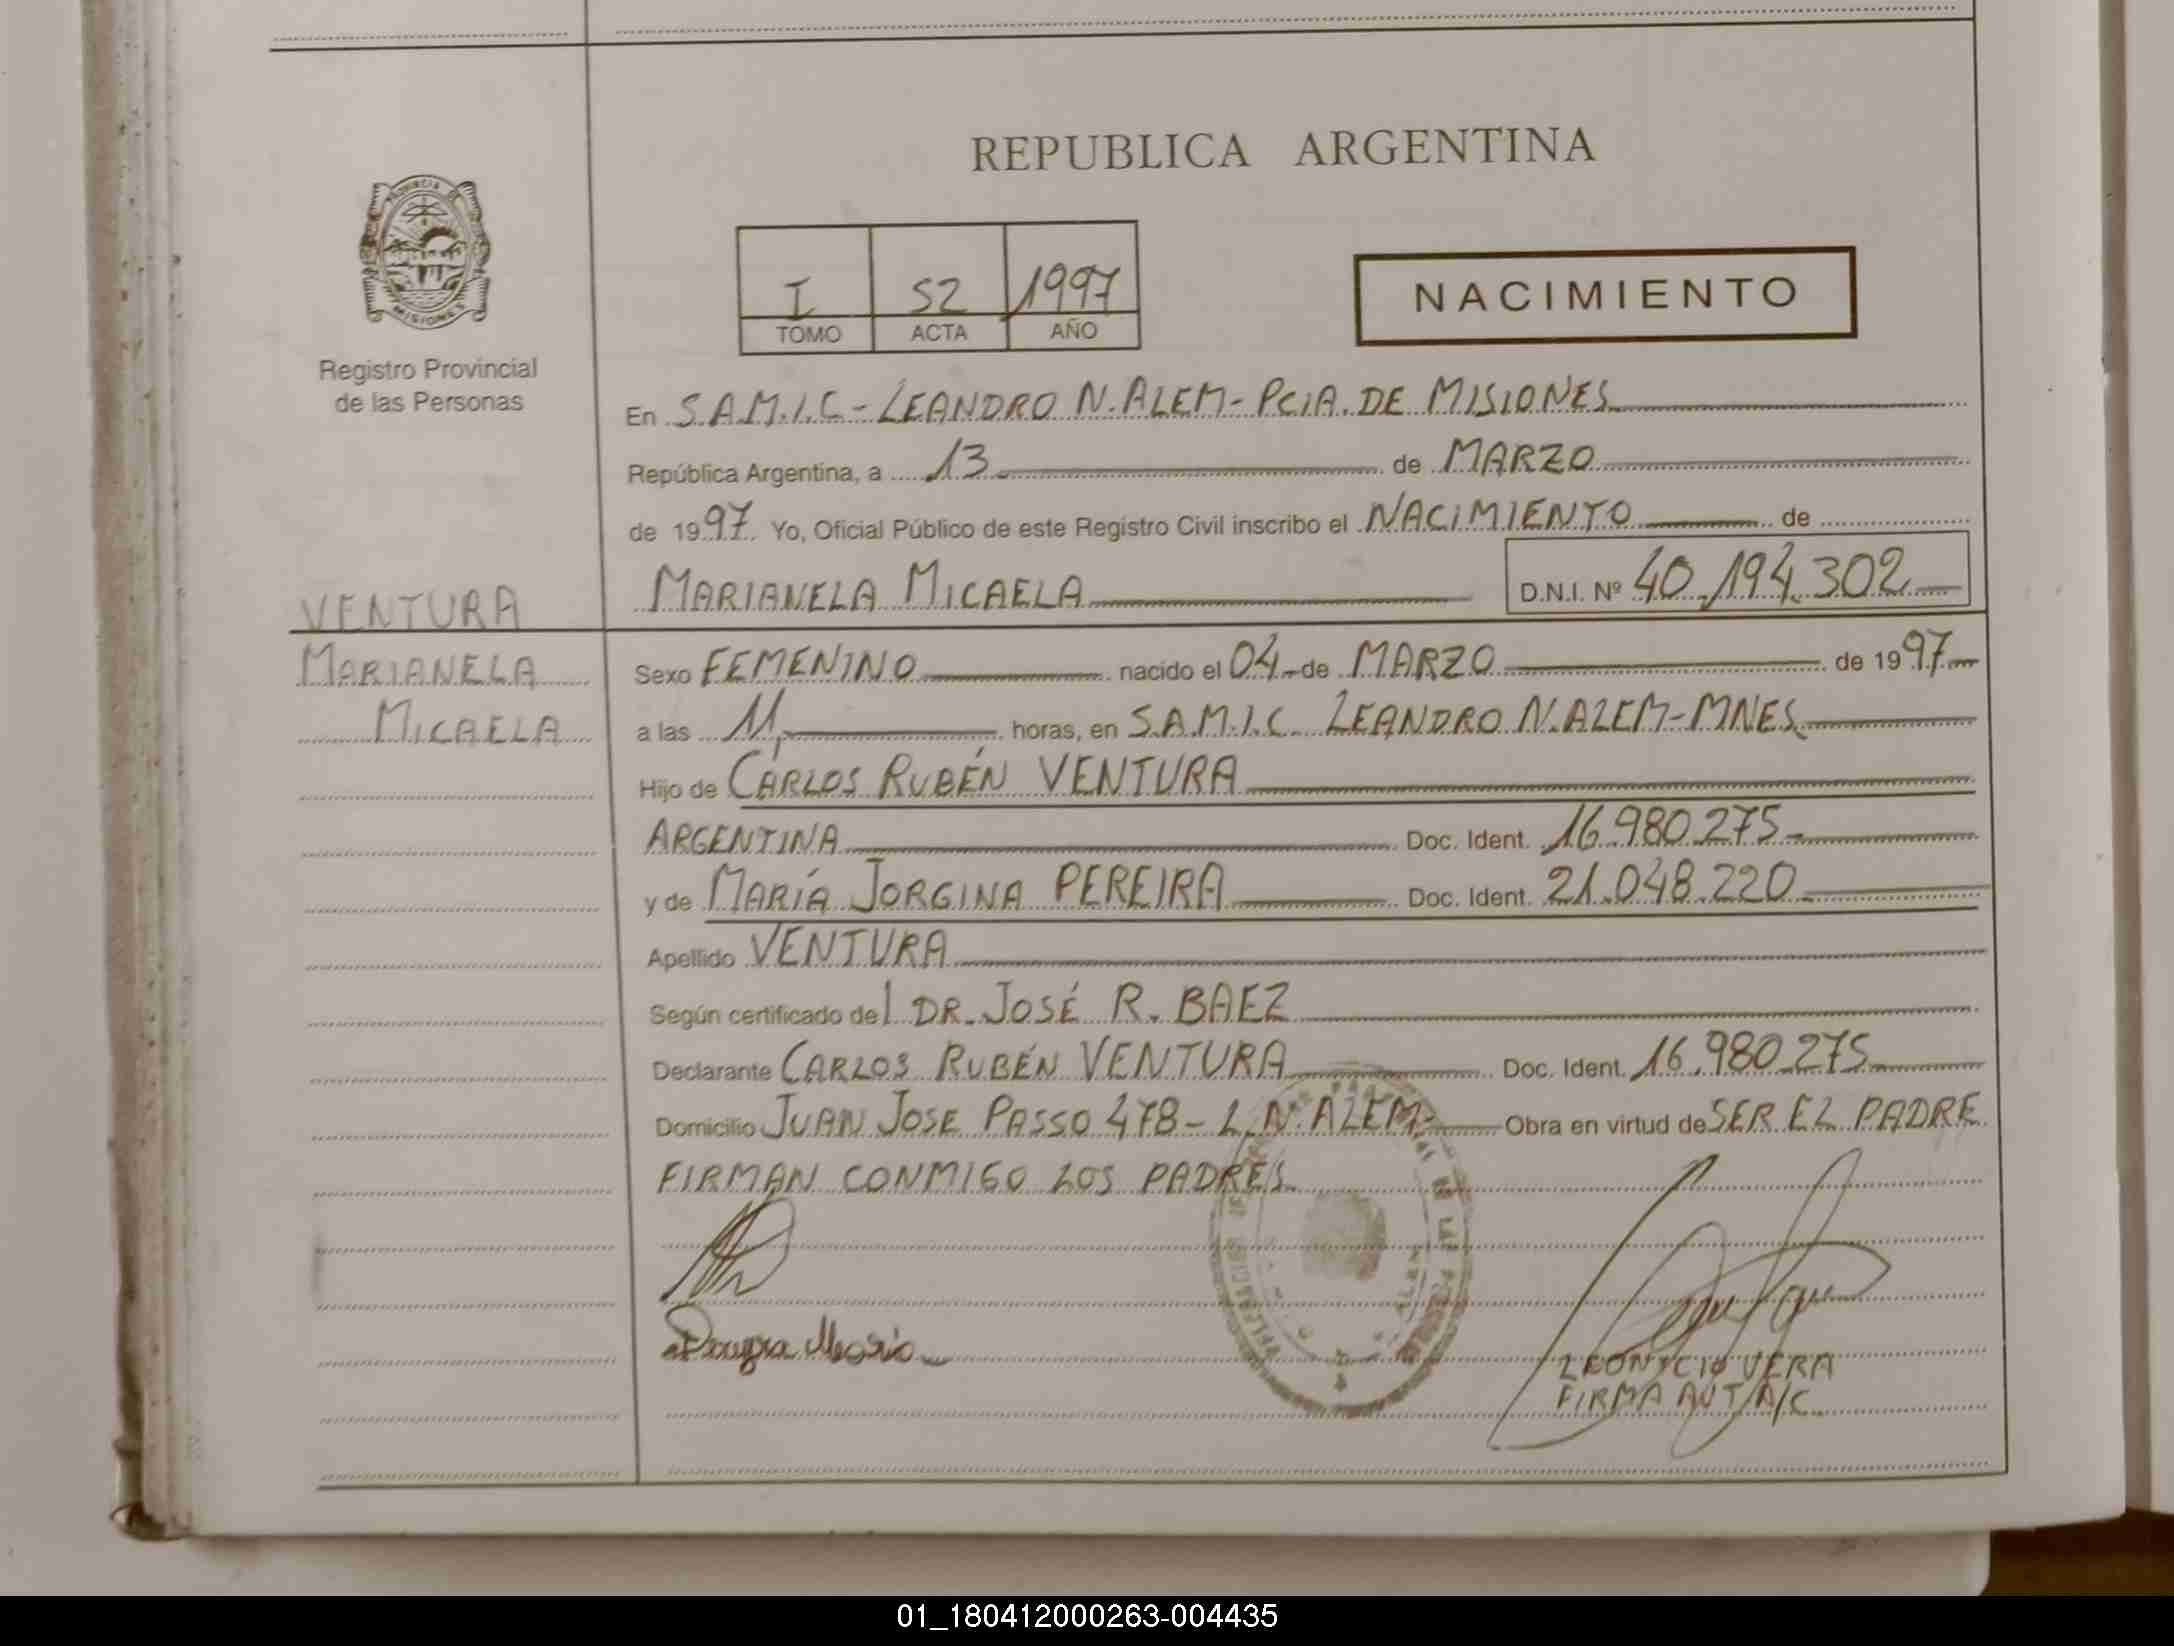 REPUBLICA ARGENTINA
PROVINCIA DE MISIONES
Registro Provincial
de las Personas
I 52 1997
TOMO ACTA AÑO
NACIMIENTO
En S.A.M.I.C - LEANDRO N. ALEM - PCIA. DE MISIONES
República Argentina, a 13 de MARZO
de 1997 Yo, Oficial Público de este Registro Civil inscribo el NACIMIENTO de
MARIANELA MICAELA D.N.I. Nº 40.194.302
VENTURA
MARIANELA
MICAELA
Sexo FEMENINO nacido el 04 de MARZO de 1997
a las 11, horas, en S.A.M.I.C. LEANDRO N. ALEM - MNES
Hijo de CARLOS RUBÉN VENTURA
ARGENTINA Doc. Ident. 16.980.275
y de MARÍA JORGINA PEREIRA Doc. Ident. 21.048.220
Apellido VENTURA
Según certificado del DR. JOSÉ R. BAEZ
Declarante CARLOS RUBÉN VENTURA Doc. Ident. 16.980.275
Domicilio JUAN JOSE PASSO 478 - L. N. ALEM Obra en virtud de SER EL PADRE
FIRMAN CONMIGO LOS PADRES
LEONICIO VERA
FIRMA AUT. A/C
01_180412000263-004435